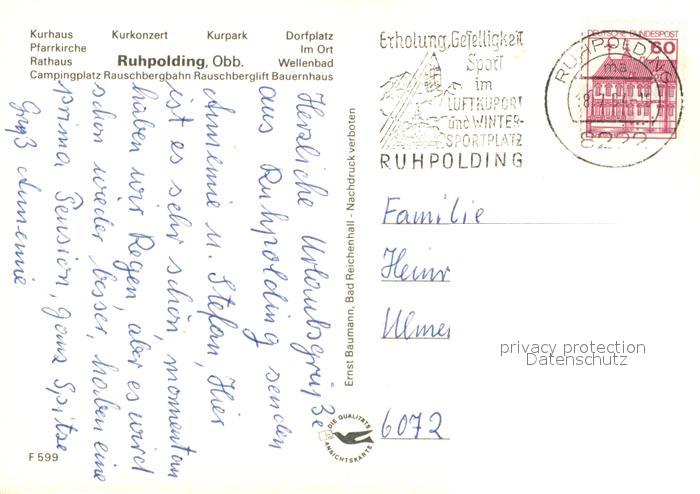 Kurhaus Kurkonzert Kurpark Dorfplatz
Pfarrkirche Im Ort
Rathaus Ruhpolding, Obb. Wellenbad
Campingplatz Rauschbergbahn Rauschberglift Bauernhaus
Herzliche Urlaubsgrüße
aus Ruhpolding senden
Annemie u. Stefan, Hier
ist es sehr schön, momentan
haben wir Regen, aber es wird
schon wieder besser, haben eine
prima Pension, ganz Spitze
Gruß Annemie
F 599
Ernst Baumann, Bad Reichenhall - Nachdruck verboten
DIE QUALITÄTS
ANSICHTSKARTE
Erholung, Geselligkeit
Sport
im
LUFTKURORT
und WINTER-
SPORTPLATZ
RUHPOLDING
DEUTSCHE BUNDESPOST
60
RUHPOLDING
ma
8222
Familie
Heinr
Ulmer
6072
privacy protection
Datenschutz